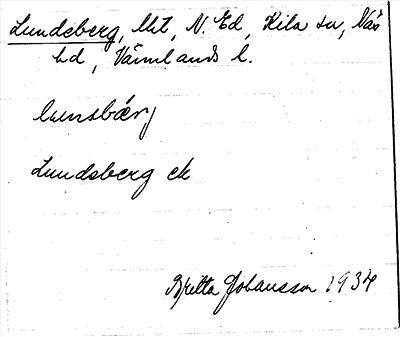 Lundsberg, lht, N. Ed, Kila sn, Näs
hd, Värmlands l.
lunsbærj
Lundsberg ek
Britta Johansson 1934